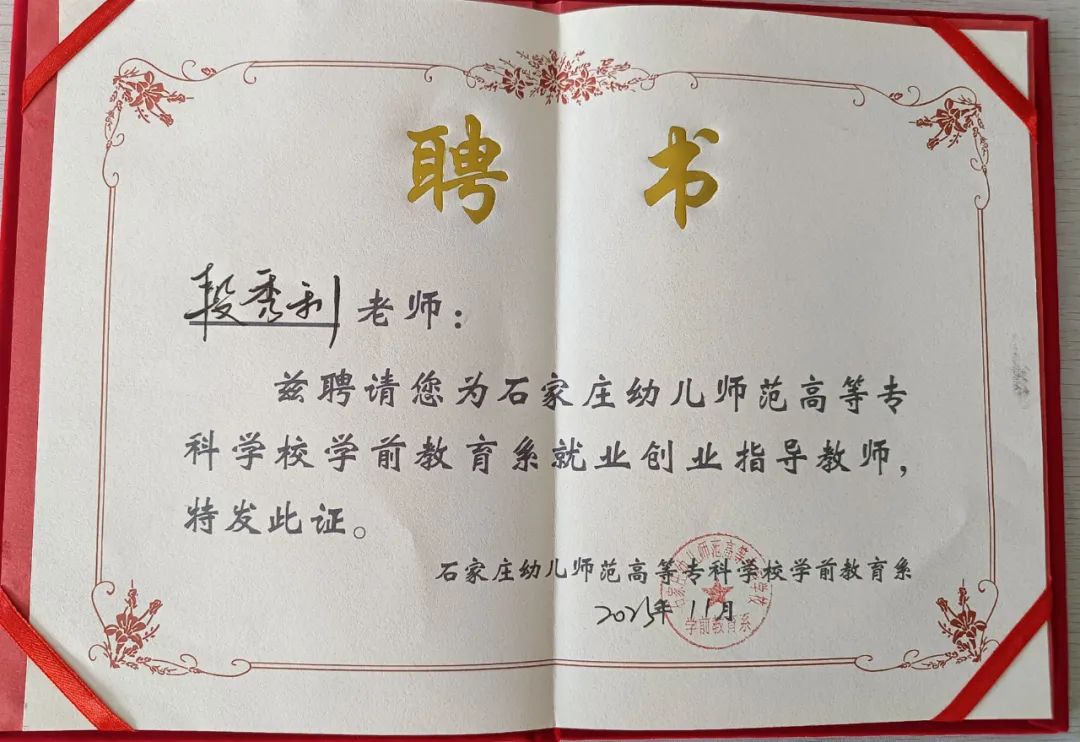 聘书
段秀利老师：
兹聘请您为石家庄幼儿师范高等专
科学校学前教育系就业创业指导教师，
特发此证。
石家庄幼儿师范高等专科学校学前教育系
2025年11月
石家庄幼儿师范高等专科学校
学前教育系